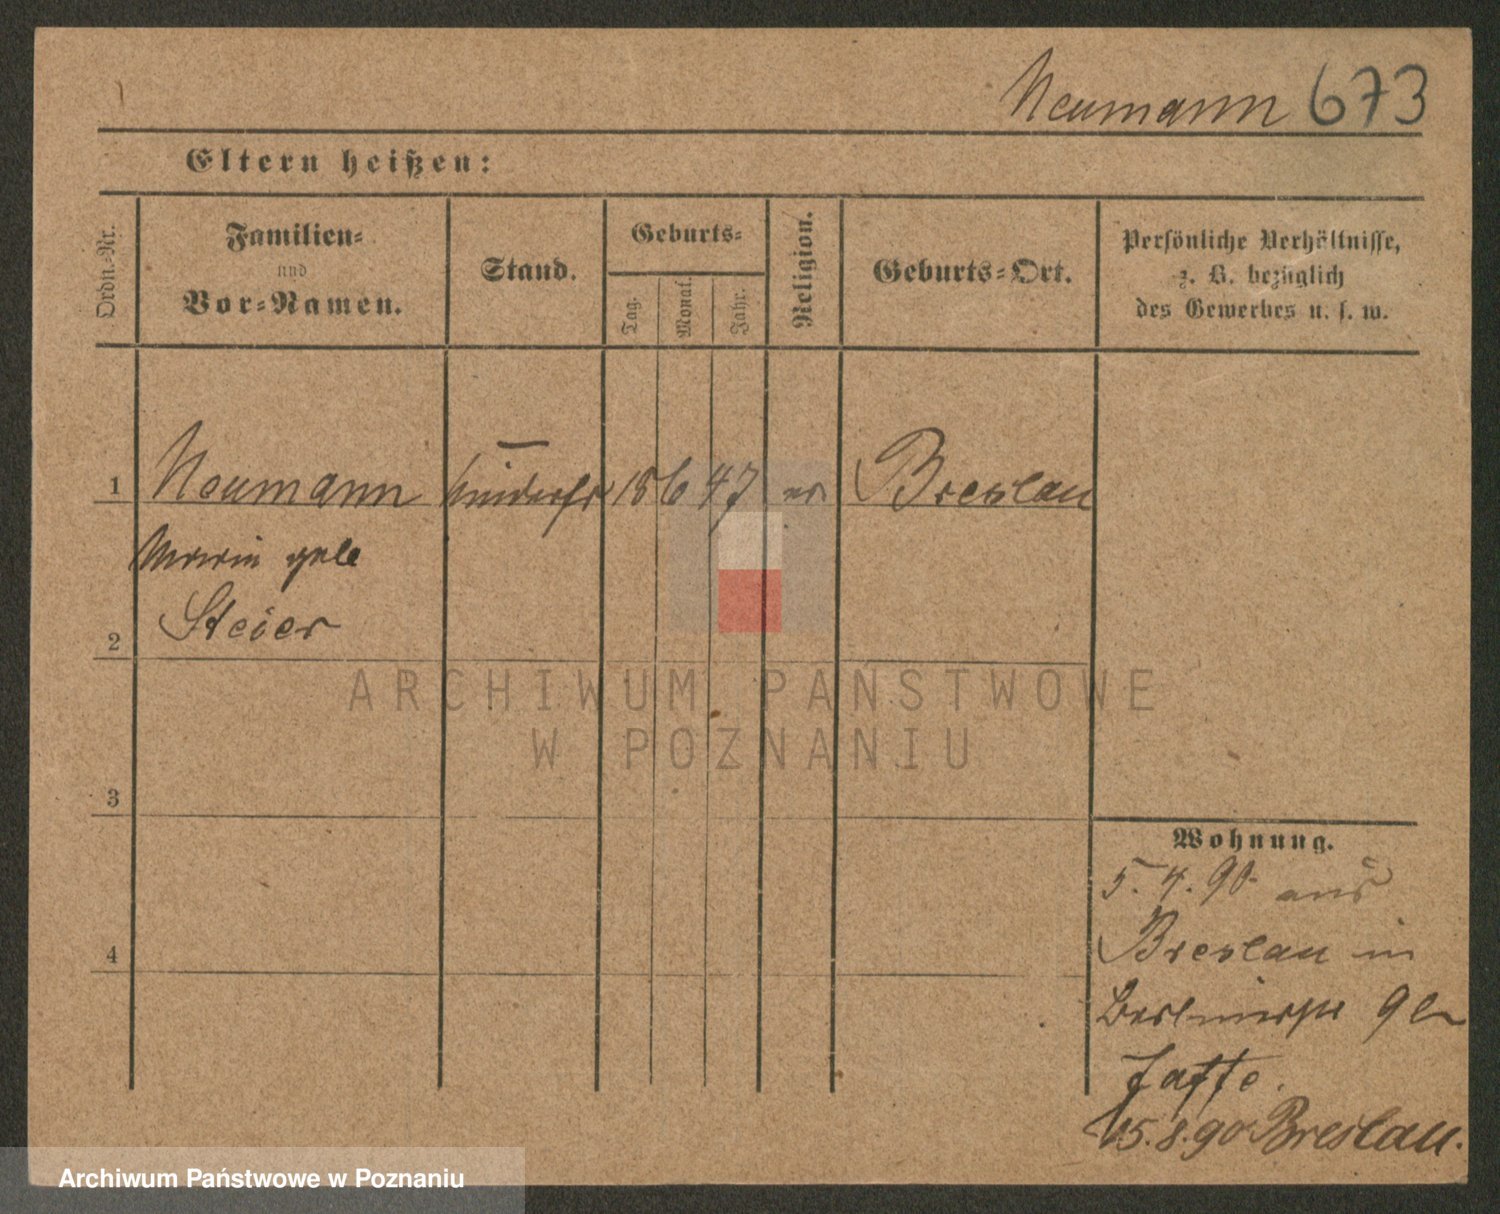 Neumann 673
Eltern heißen:
Ordn.-Nr.
Familien-
und
Vor-Namen.
Stand.
Geburts-
Tag.
Monat.
Jahr.
Religion.
Geburts-Ort.
Persönliche Verhältnisse,
z. B. bezüglich
des Gewerbes u. s. w.
1 Neumann 18 6 47 ev Breslau
Maria geb
Steier
2
ARCHIWUM PAŃSTWOWE
W POZNANIU
3
4
Wohnung.
5. 4. 90 aus
Breslau in
9
Jaffe.
15. 8. 90 Breslau.
Archiwum Państwowe w Poznaniu